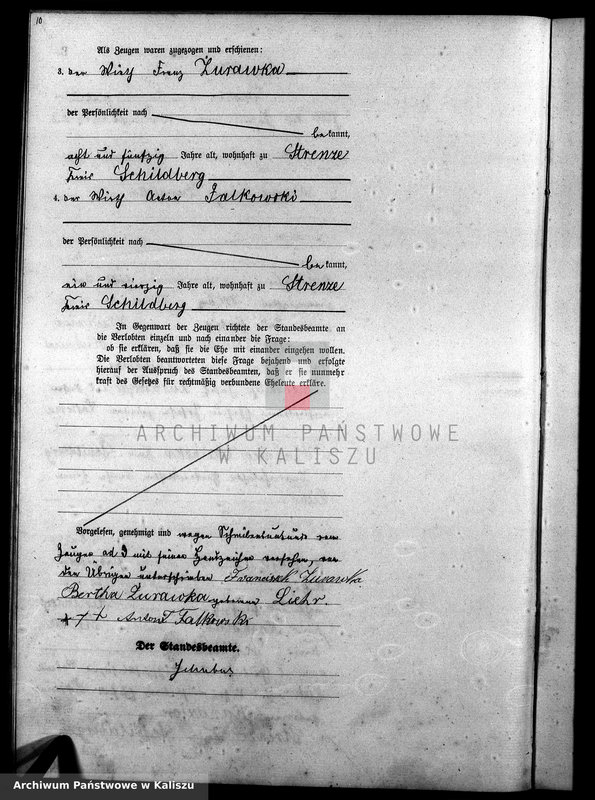 10
Als Zeugen waren zugezogen und erschienen:
3. der Wirth Franz Żurawka
der Persönlichkeit nach
bekannt,
acht und fünfzig Jahre alt, wohnhaft zu Strenze
Kreis Schildberg
4. der Wirth Anton Falkowski
der Persönlichkeit nach
bekannt,
ein und vierzig Jahre alt, wohnhaft zu Strenze
Kreis Schildberg
In Gegenwart der Zeugen richtete der Standesbeamte an
die Verlobten einzeln und nach einander die Frage:
ob sie erklären, daß sie die Ehe mit einander eingehen wollen.
Die Verlobten beantworteten diese Frage bejahend und erfolgte
hierauf der Ausspruch des Standesbeamten, daß er sie nunmehr
kraft des Gesetzes für rechtmäßig verbundene Eheleute erkläre.
ARCHIWUM PAŃSTWOWE
W KALISZU
Vorgelesen, genehmigt und wegen Schreibensunkunde vom
Zeugen ad 3 mit seinem Handzeichen versehen, von
den Übrigen unterschrieben Franciszek Żurawka
Bertha Żurawka geborene Liehr.
+++ Anton Falkowski
Der Standesbeamte.
Archiwum Państwowe w Kaliszu